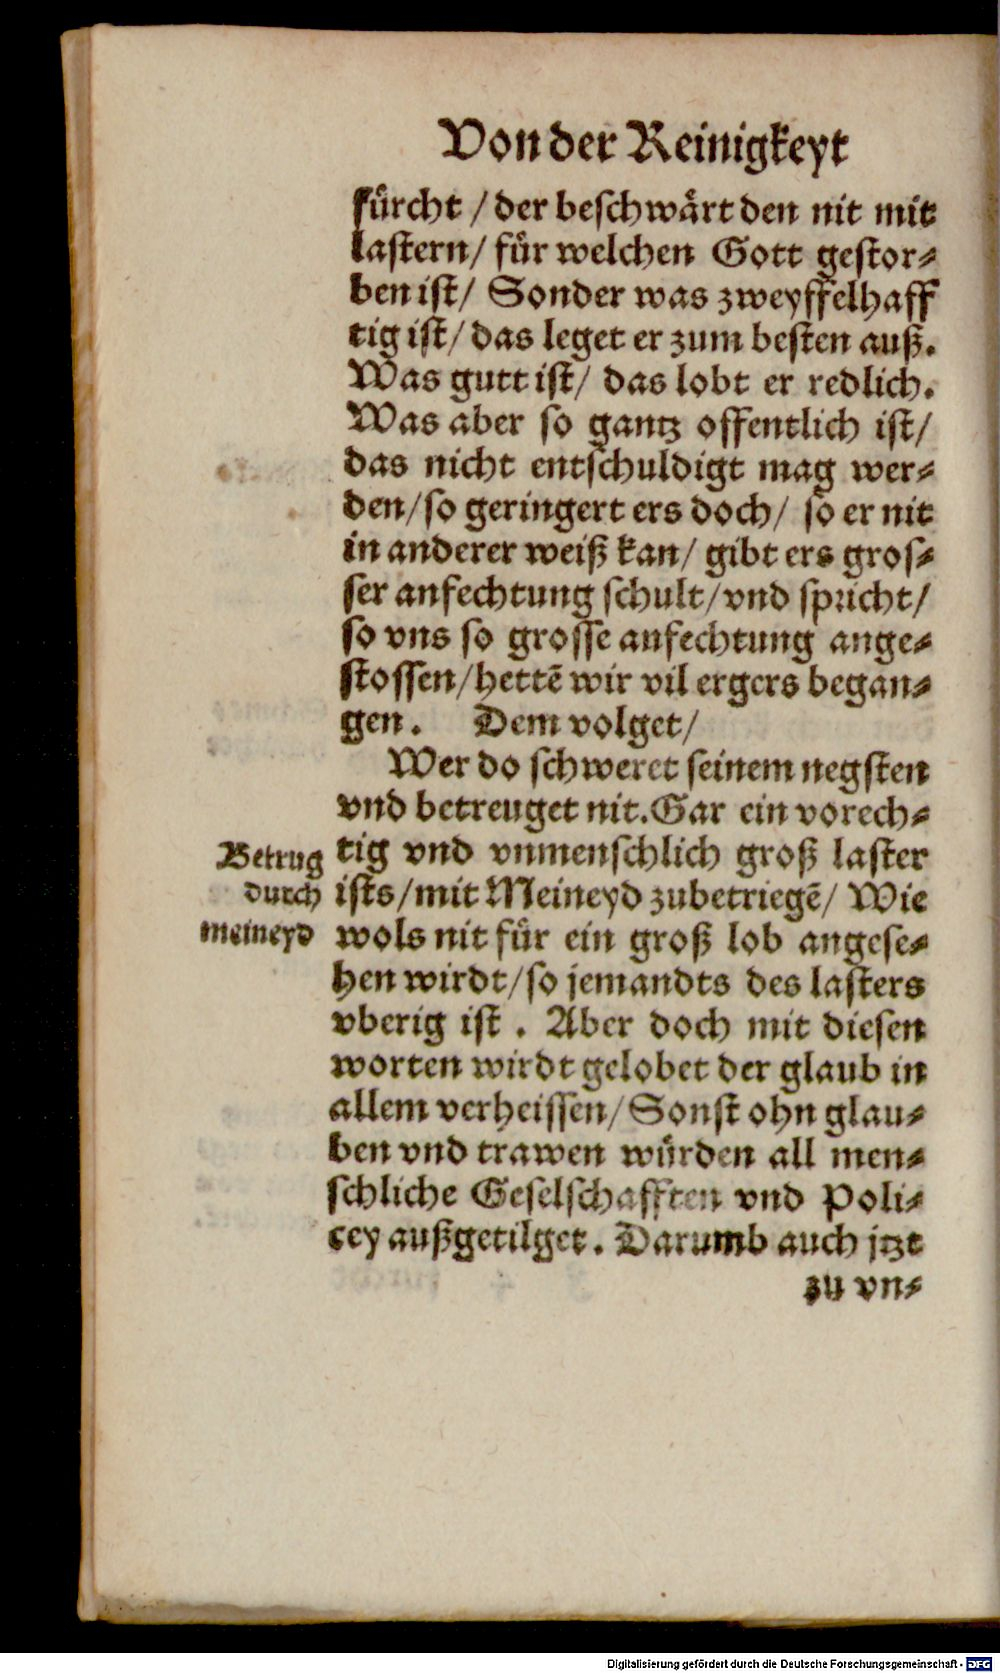 Von der Reinigkeyt
fürcht / der beschwärt den nit mit
lastern/ für welchen Gott gestor⸗
ben ist/ Sonder was zweyffelhaff
tig ist/ das leget er zum besten auß.
Was gutt ist/ das lobt er redlich.
Was aber so gantz offentlich ist/
das nicht entschuldigt mag wer⸗
den/ so geringert ers doch/ so er nit
in anderer weiß kan/ gibt ers gros⸗
ser anfechtung schult/ vnd spricht/
so vns so grosse anfechtung ange⸗
stossen/ hettē wir vil ergers began⸗
gen. Dem volget/
Wer do schweret seinem negsten
vnd betreuget nit. Gar ein vorech⸗
tig vnd vnmenschlich groß laster
Betrug
durch
meineyd
ists/ mit Meineyd zubetriegē/ Wie
wols nit für ein groß lob angese⸗
hen wirdt/ so jemandts des lasters
vberig ist . Aber doch mit diesen
worten wirdt gelobet der glaub in
allem verheissen/ Sonst ohn glau⸗
ben vnd trawen würden all men⸗
schliche Geselschafften vnd Poli⸗
cey außgetilget. Darumb auch jtzt
zu vn⸗
Digitalisierung gefördert durch die Deutsche Forschungsgemeinschaft - DFG